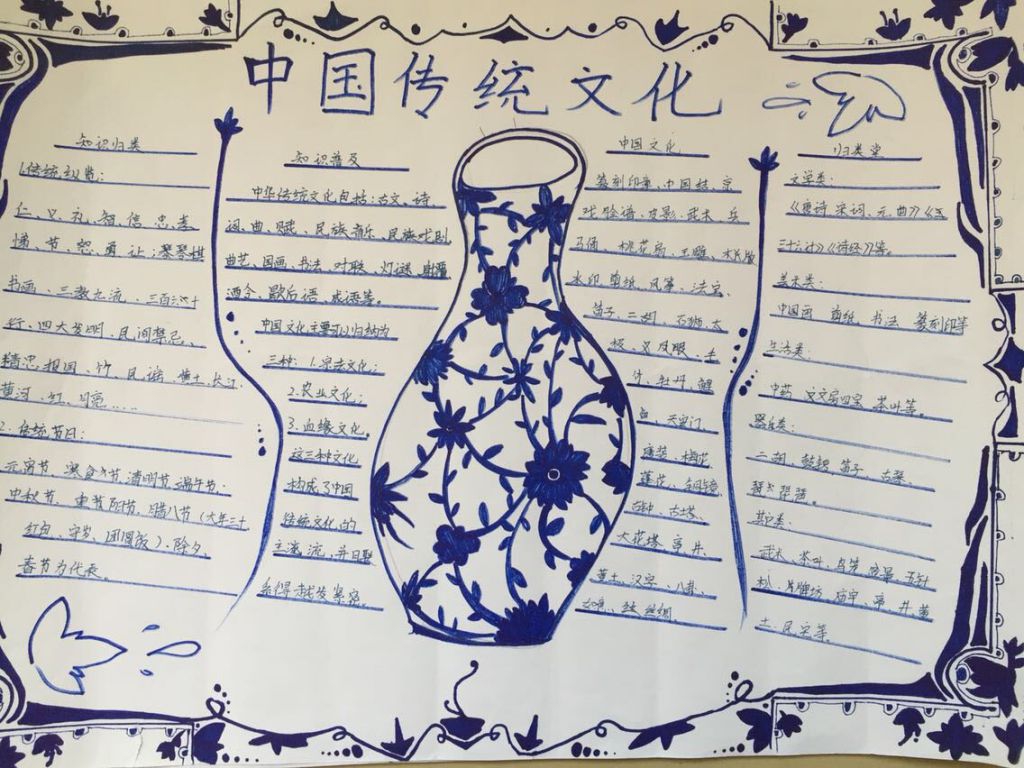 中国传统文化
知识归类
1.传统纵览：
仁、义、礼、智、信、忠、孝
悌、节、恕、勇、让；琴棋
书画、三教九流、三百六十
行、四大发明、民间禁忌、
精忠报国、竹、民谣、黄土、长江、
黄河、红、月亮……
2.传统节日：
元宵节、寒食节、清明节、端午节、
中秋节、重阳节、腊八节（大年三十
红包、守岁、团圆饭）；除夕、
春节为代表。
知识普及
中华传统文化包括：古文、诗、
词、曲、赋、民族音乐、民族戏剧
曲艺、国画、书法、对联、灯谜、射覆
酒令、歇后语、成语等。
中国文化主要可以归纳为
三种：1.宗法文化；
2.农业文化；
3.血缘文化。
这三种文化
构成了中国
传统文化的
主流，并日
中国文化
篆刻印章、中国结、京
戏脸谱、皮影、武术、兵
马俑、桃花扇、玉雕、
水印、剪纸、风筝、
笛子、二胡、石狮、
凤眼、
牡丹、
天安门、
唐装、梅花
莲花、
古塔、
大花塔、亭、井、
黄土、汉字、八卦、
丝绸、
归类堂
文学类：
《唐诗、宋词、元曲》《
三十六计》《诗经》等。
美术类：
中国画、剪纸、书法、篆刻印等
生活类：
中药、文房四宝、茶叶等。
器乐类：
二胡、鼓、笛子、古琴、
琵琶。
其它类：
武术、茶叶、
牌坊、庙宇、亭、井、黄
土、民宅等。